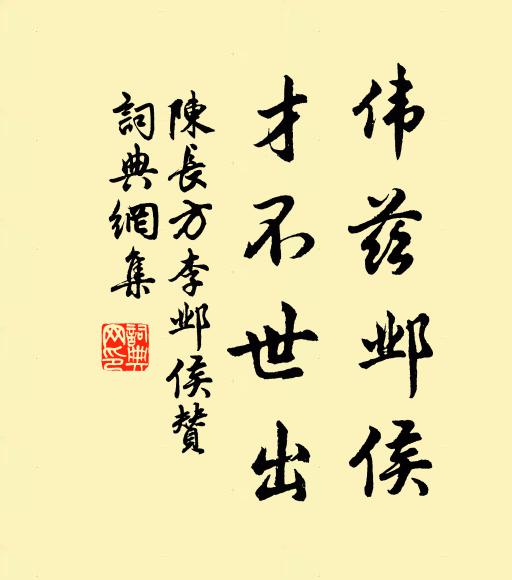 伟兹邺侯
才不世出
陳長方李邺侯賛
詞典網集
詞典网印